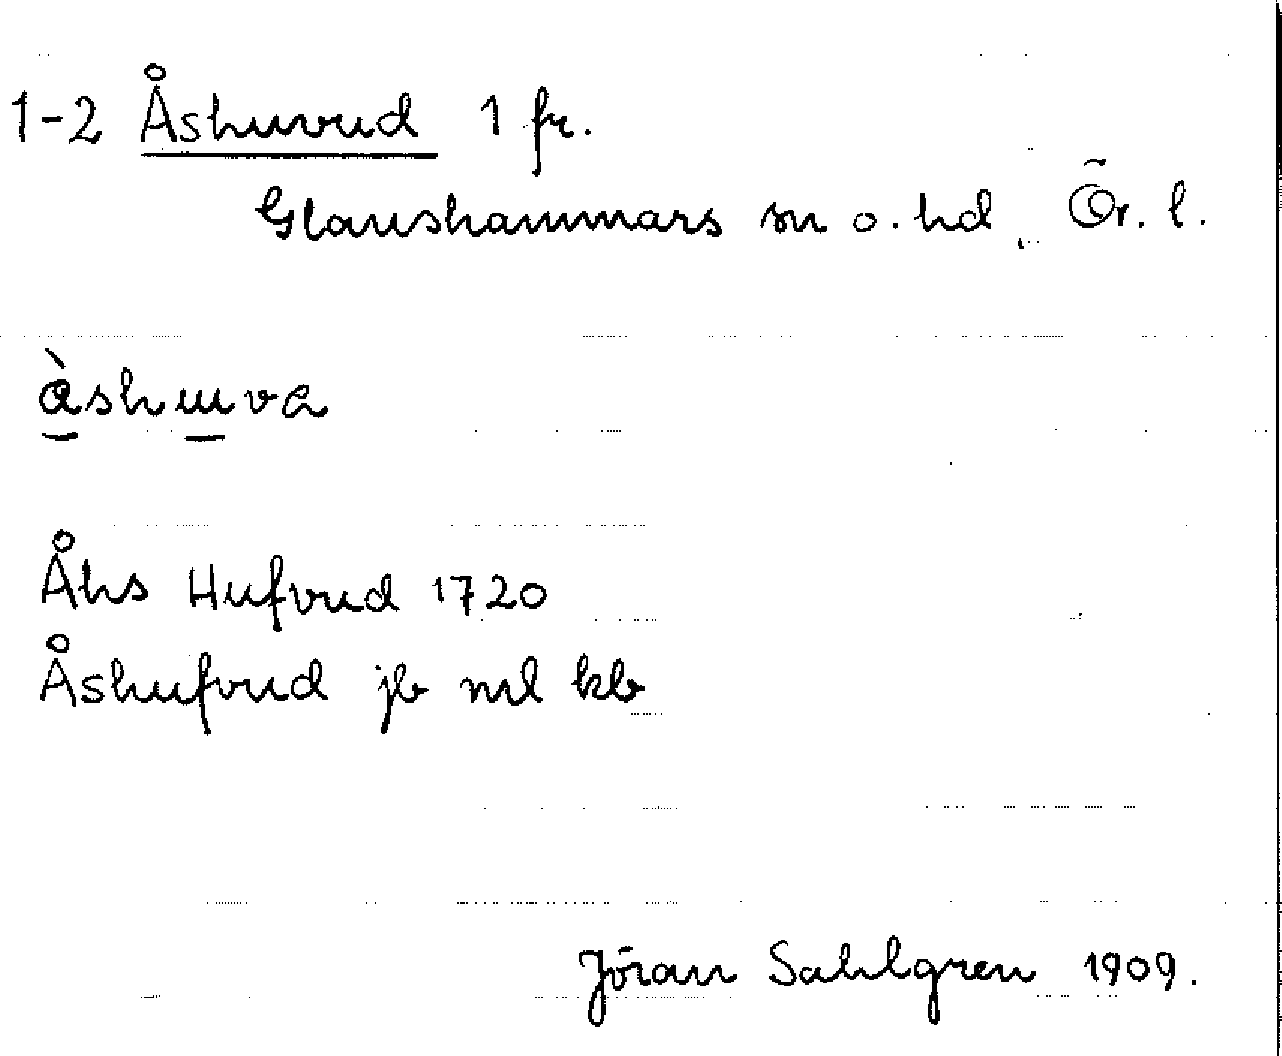 1-2 Åshuvud 1 fr.
Glanshammars sn o. hd Ör. l.
Åhs Hufvud 1720
Åshufvud jb ml kb
Jöran Sahlgren 1909.